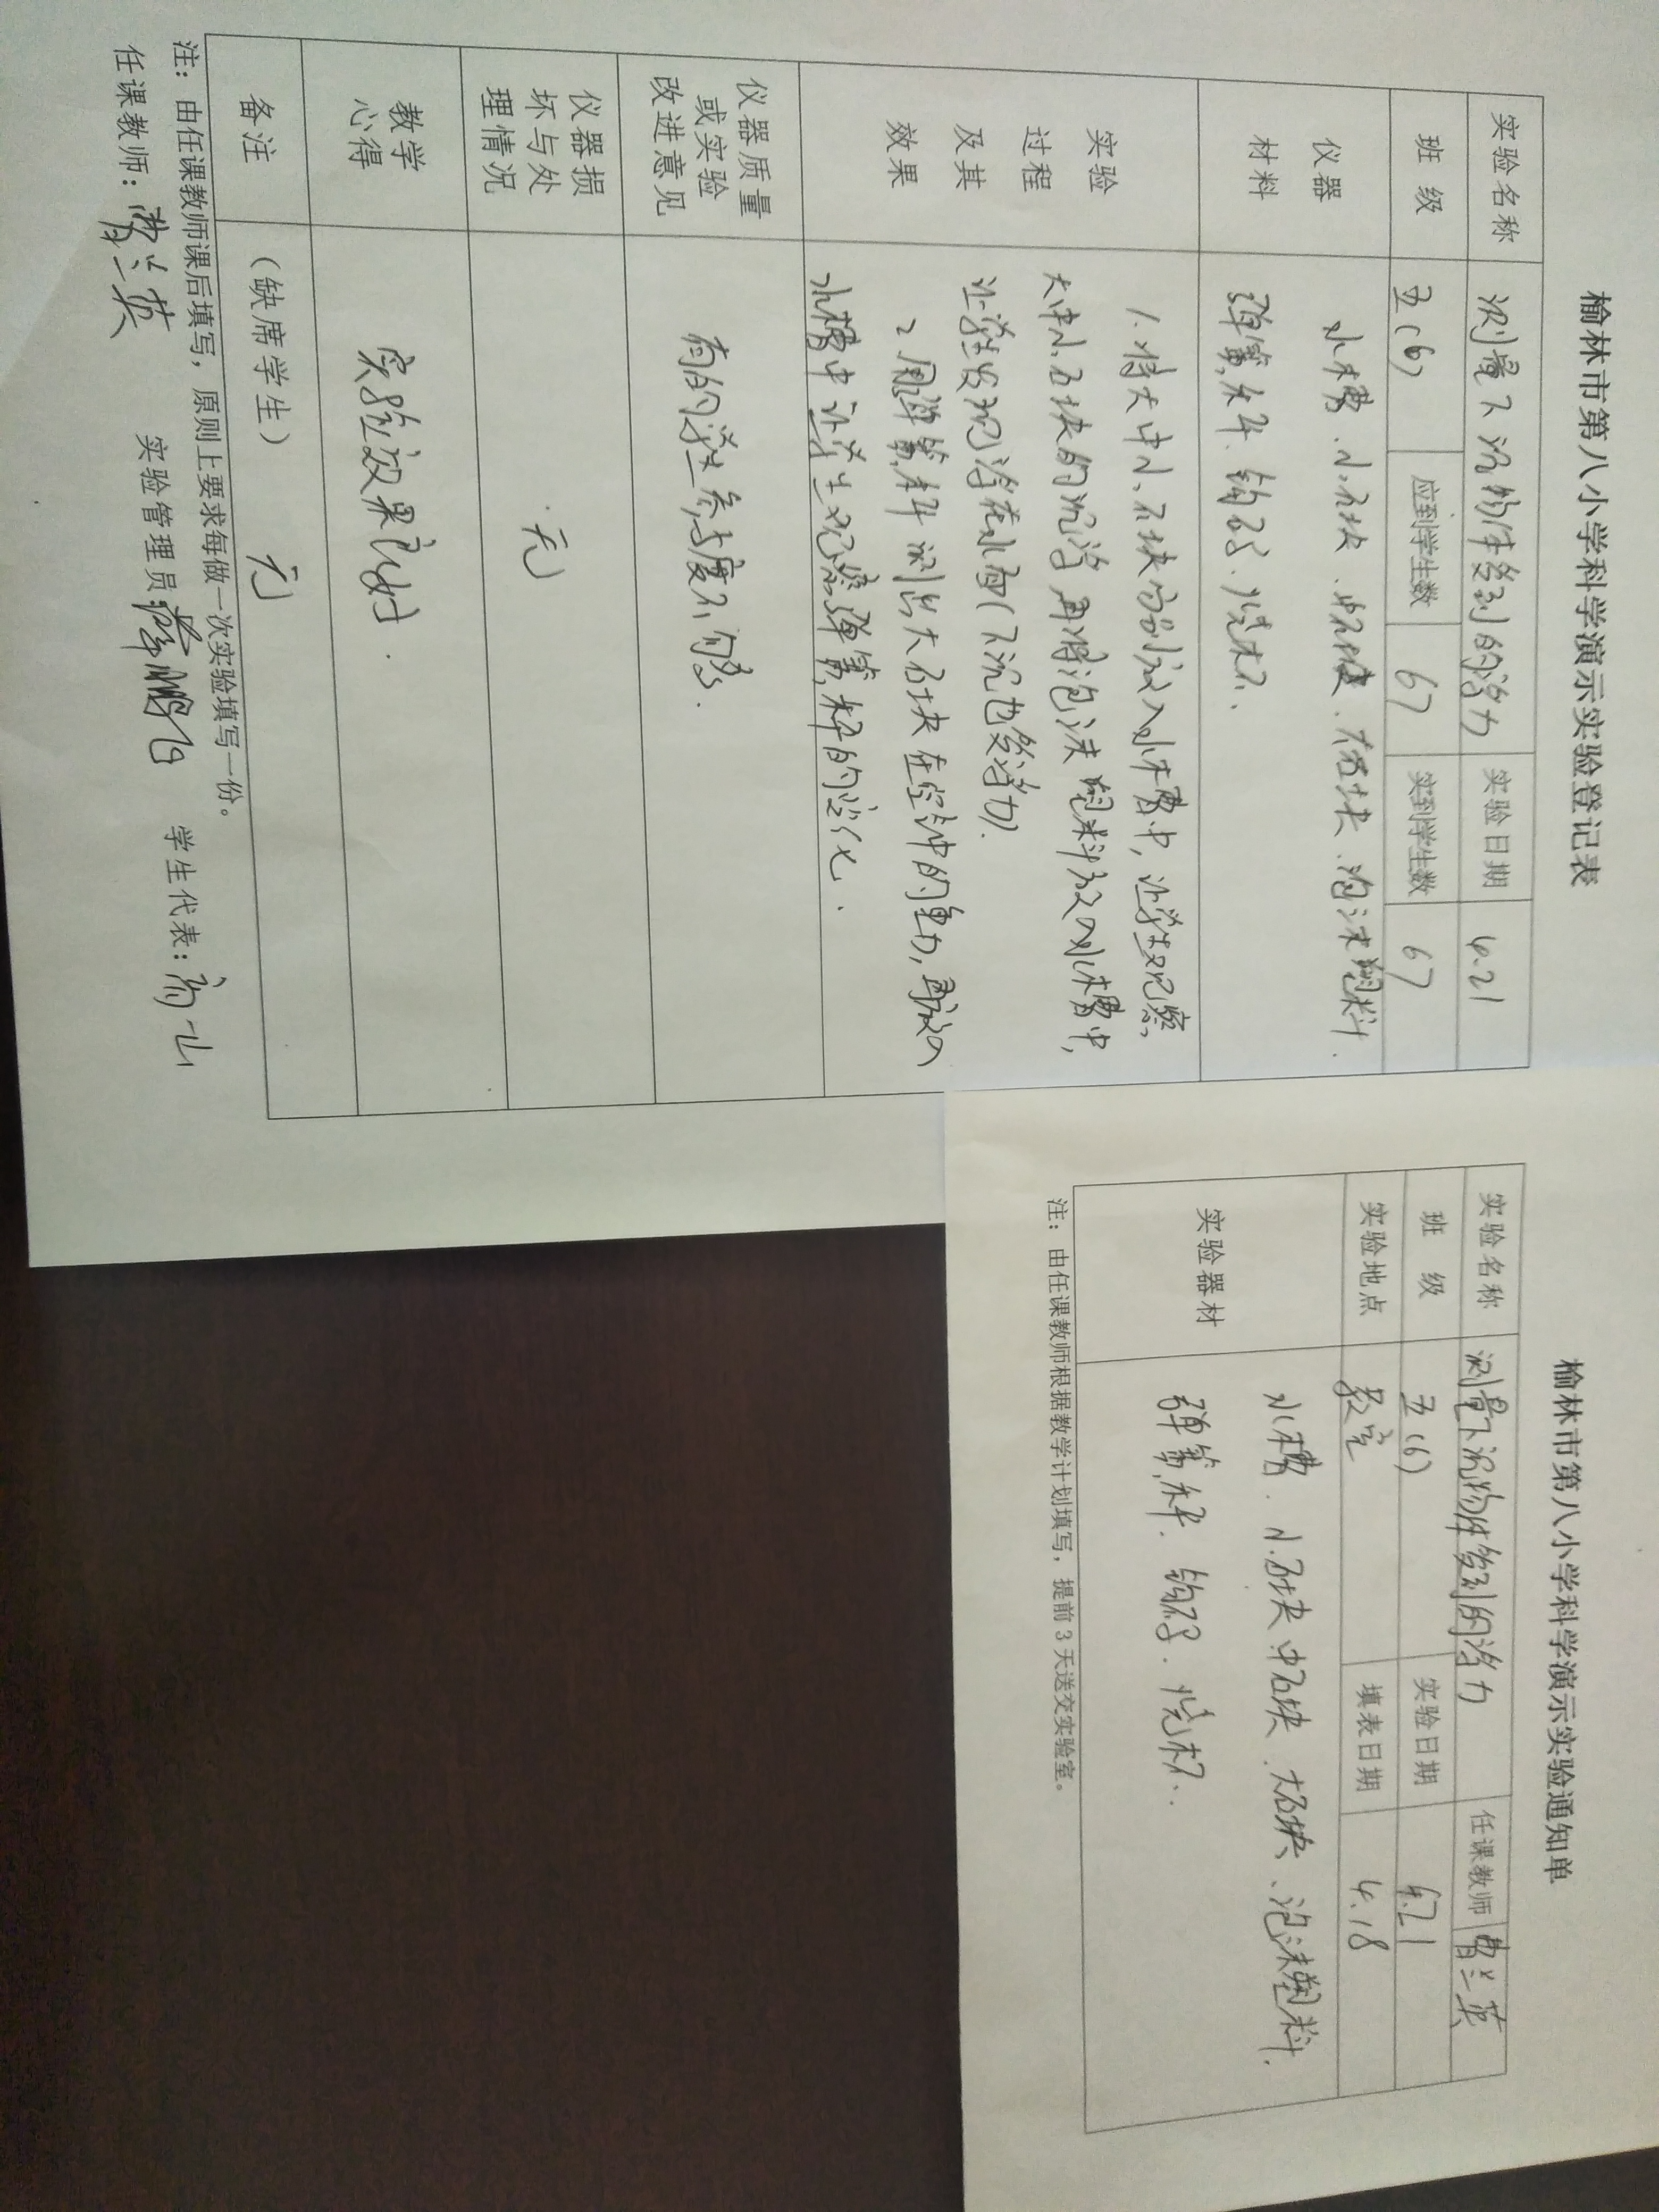 榆林市第八小学科学演示实验登记表
实验名称 测量下沉的物体受到的浮力 实验日期 4.21
班 级 五(6) 应到学生数 67 实到学生数 67
仪器
材料
水槽、小石块、中石块、大石块、泡沫塑料、
弹簧秤、钩码、烧杯、
实验
过程
及其
效果
1、将大中小、石块分别放入水槽中,让学生观察,
大中小、石块的沉浮 再将泡沫塑料放入水槽中,
让学生发现浮在水面(下沉也受浮力).
2 用弹簧秤测出大石块在空气中的重力,再放入
水槽中 让学生观察弹簧秤的变化.
仪器质量
或实验
改进意见
有的学生参与度不够.
仪器损
坏与处
理情况
无
教学
心得
实验效果良好.
备注 (缺席学生) 无
注：由任课教师课后填写，原则上要求每做一次实验填写一份。
任课教师: 曹兰英 实验管理员: 学生代表:
榆林市第八小学科学演示实验通知单
实验名称 测量下沉物体受到的浮力 任课教师 曹兰英
班 级 五(6) 实验日期 4.21
实验地点 教室 填表日期 4.18
实验器材
水槽、小石块 中石块、大石块、泡沫塑料、
弹簧秤、钩码、烧杯、
注：由任课教师根据教学计划填写，提前 3 天送交实验室。